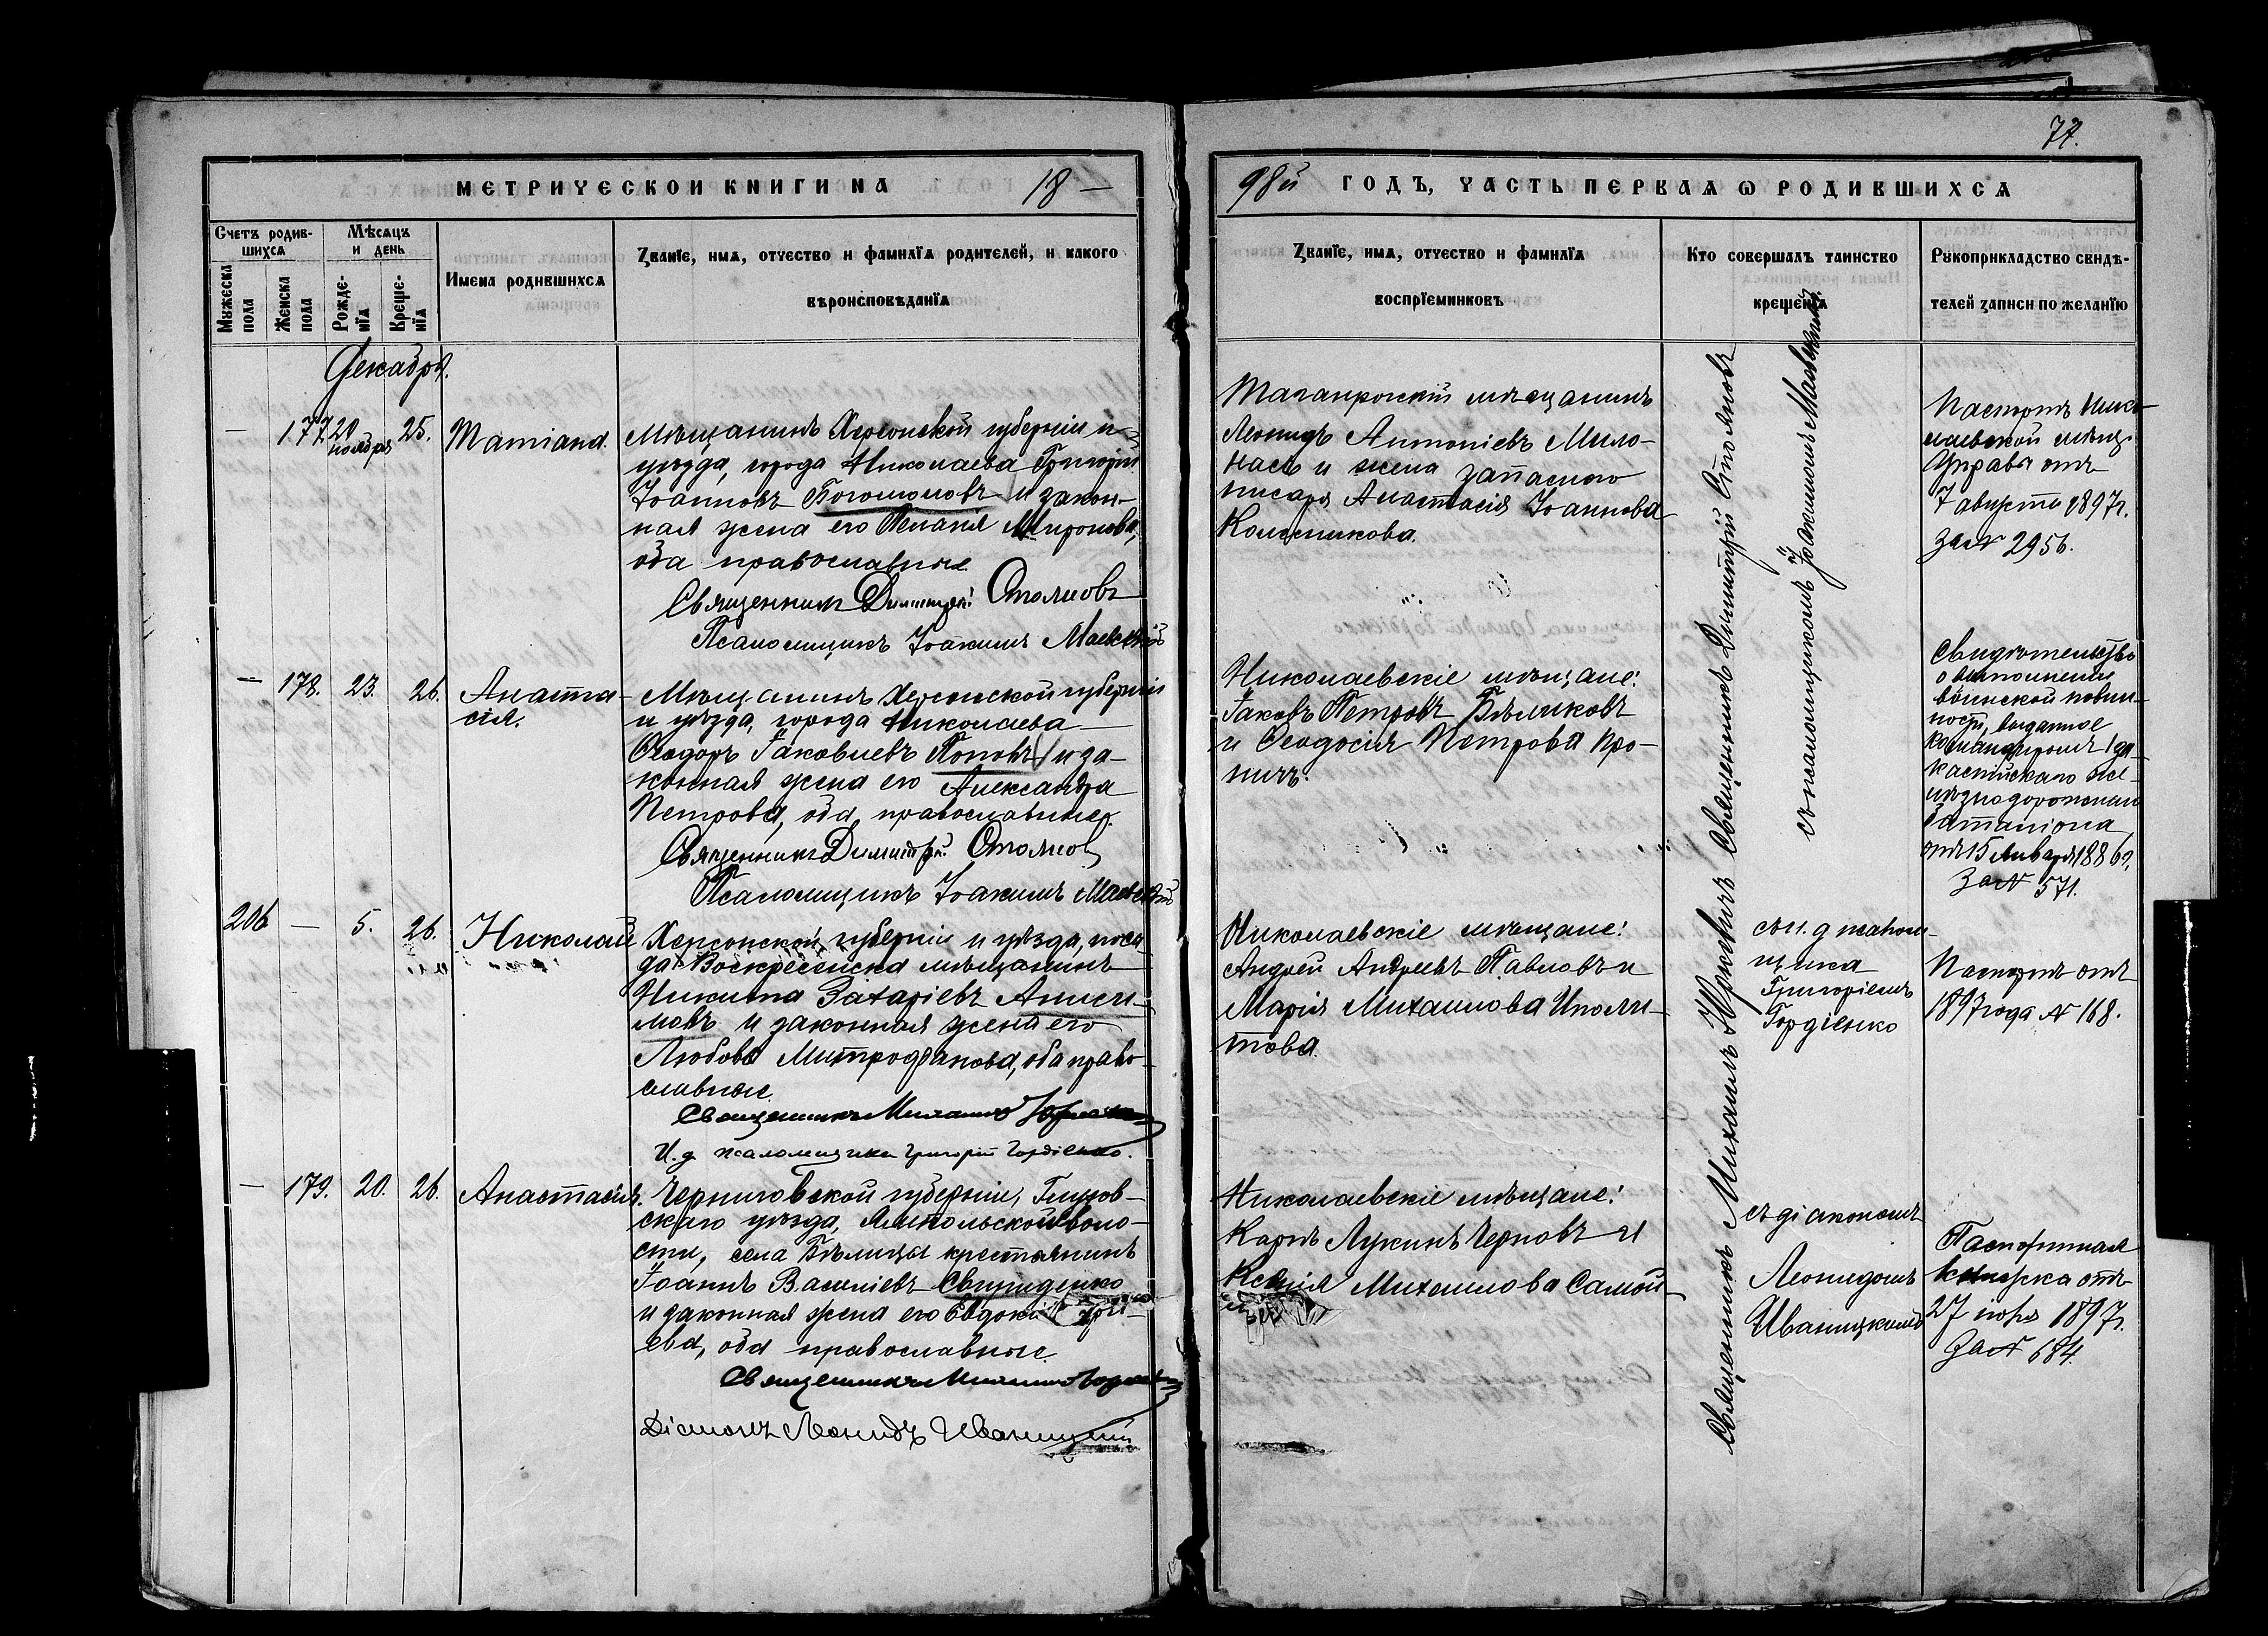 77.
МЕТРИЧЕСКОЙ КНИГИ НА 18—
98й ГОДЪ, ЧАСТЬ ПЕРВАЯ Ѡ РОДИВШИХСЯ
Счетъ родив-
шихся
Мужеска пола
Женска пола
Мѣсяцъ
и день
Рожде-
нія
Креще-
нія
Имена родившихся
Званіе, имя, отчество и фамилія родителей, и какого
вѣроисповѣданія
Званіе, имя, отчество и фамилія
воспріемниковъ
Кто совершалъ таинство
крещенія
Рукоприкладство свидѣ-
телей записи по желанію
Декабрь.
— 177. 20 ноября 25. Татіана.
Мѣщанинъ Херсонской губерніи и
уѣзда, города Николаева Григорій
Іоанновъ и закон-
ная жена его Пелагія Миронова,
оба православные.
Священникъ Димитрій Стояновъ
Псаломщикъ Іоакимъ Маевскій
Таганрогскій мѣщанинъ
Леонидъ Антоніевъ Мило-
насъ и жена запаснаго
писаря Анастасія Іоаннова
Колесникова.
Паспортъ Нико-
лаевской мѣщ.
Управы отъ
7 августа 1897г.
за № 2956.
— 178. 23. 26. Анаста-
сія.
Мѣщанинъ Херсонской губерніи
и уѣзда, города Николаева
Ѳеодоръ Іаковлевъ Поповъ и за-
конная жена его Александра
Петрова, оба православные.
Священникъ Димитрій Стояновъ
Псаломщикъ Іоакимъ Маевскій
Николаевскіе мѣщане:
Іаковъ Петровъ Бѣликовъ
и Ѳеодосія Петрова Про-
ничъ.
Свидѣтельство
о выполненіи
воинской повин-
ности, выданное
Командиромъ 1 За-
каспійскаго же-
лѣзнодорожнаго
баталіона
отъ 15 Января 1886г.
За № 571.
Священникъ Димитрій Стояновъ
съ псаломщикомъ Іоакимомъ Маевскимъ.
206 — 5. 26. Николай
Херсонской губерніи и уѣзда, поса-
да Воскресенска мѣщанинъ
Никита Захаріевъ Аниси-
мовъ и законная жена его
Любовь Митрофанова, оба право-
славные.
Священникъ Михаилъ
И. д. псаломщика Григорій Гордіенко.
Николаевскіе мѣщане:
Андрей Андреевъ Павловъ и
Марія Михаилова Иполи-
това.
съ и. д псалом-
щика
Григоріемъ
Гордіенко
Паспортъ отъ
1897 года № 168.
— 179. 20. 26. Анастасія.
Черниговской губерніи, Глухов-
скаго уѣзда, Ямпольской воло-
сти, села Бѣлицы крестьянинъ
Іоаннъ Василіевъ Свириденко
и законная жена его Евдокія
ева, оба православные.
Священникъ Михаилъ
Діаконъ Леонидъ Иваницкій
Николаевскіе мѣщане:
Карпъ Лукинъ Черновъ и
Ксенія Михаилова Самой-
Священникъ Михаилъ
съ діакономъ
Леонидомъ
Иваницкимъ
Паспортная
книжка отъ
27 1897г.
За № 684.